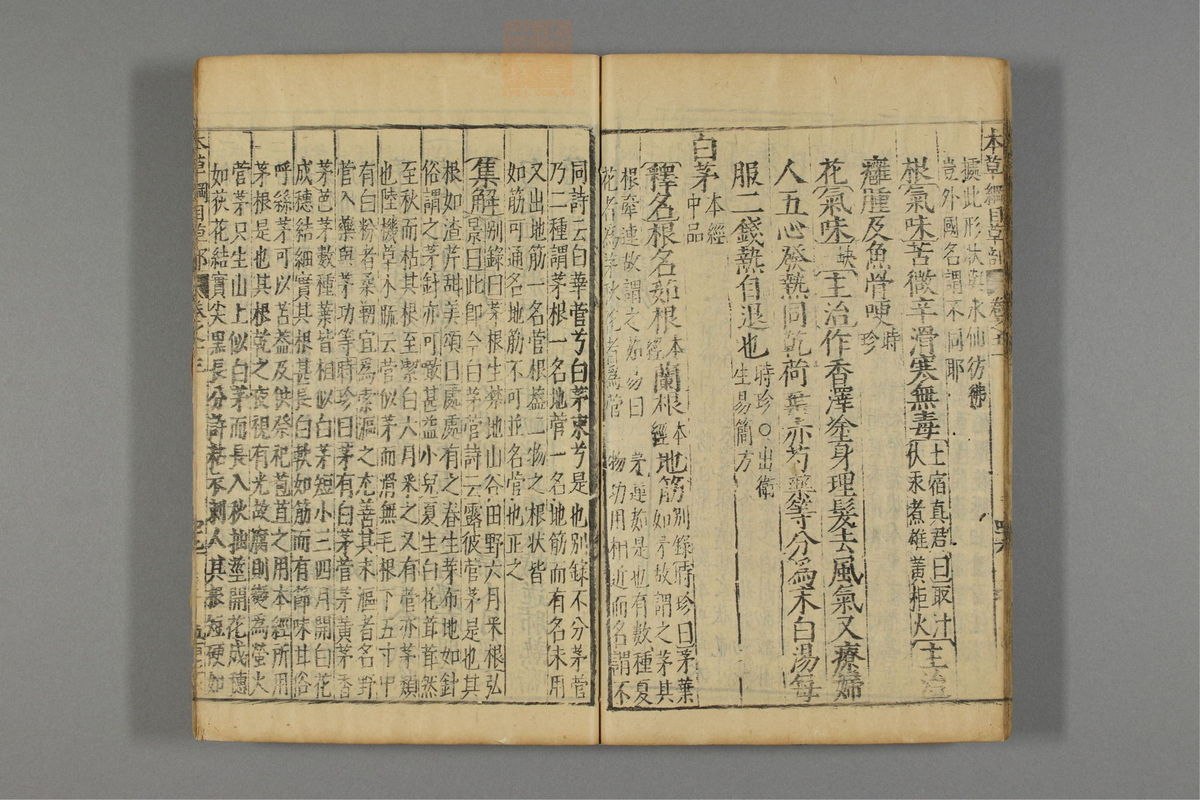 本草綱目草部
據此形狀與水仙彷彿
豈外國名謂不同耶
根氣味苦微辛滑寒無毒土宿真君曰取汁
伏汞煮雄黃拒火主治
癰腫及魚骨哽時
珍
花氣味缺主治作香澤塗身理髮去風氣又療婦
人五心發熱同乾荷葉赤芍藥等分爲末白湯每
服二錢熱自退也時珍○出衛
生易簡方
白茅本經
中品
釋名根名茹根本
經蘭根本
經地筋別錄時珍曰茅葉
如矛故謂之茅其
根牽連故謂之茹易曰茅連茹是也有數種夏
花者爲茅秋花者爲菅物功用相近而名謂不
同詩云白華菅兮白茅束兮是也別錄不分茅菅
乃二種謂茅根一名地菅一名地筋而有名未用
又出地筋一名菅根蓋二物之根狀皆
如筋可通名地筋不可並名菅也正之
集解別錄曰茅根生楚地山谷田野六月采根弘
景曰此即今白茅菅詩云露彼菅茅是也其
根如渣芹甜美頌曰處處有之春生芽布地如針
俗謂之茅針亦可噉甚益小兒夏生白花茸茸然
至秋而枯其根至潔白六月采之又有菅亦茅類
也陸機草木疏云菅似茅而滑無毛根下五寸中
有白粉者柔韌宜爲索漚之尤善其未漚者名野
菅入藥與茅功等時珍曰茅有白茅菅茅黃茅香
茅芭茅數種葉皆相似白茅短小三四月開白花
成穗結細實其根甚長白軟如筋而有節味甘俗
呼絲茅可以苫蓋及供祭祀苞苴之用本經所用
茅根是也其根乾之夜視有光故腐則變爲螢火
菅茅只生山上似白茅而長入秋抽莖開花成穗
如荻花結實尖黑長分許粘衣刺人其根短硬如
本草綱目草部